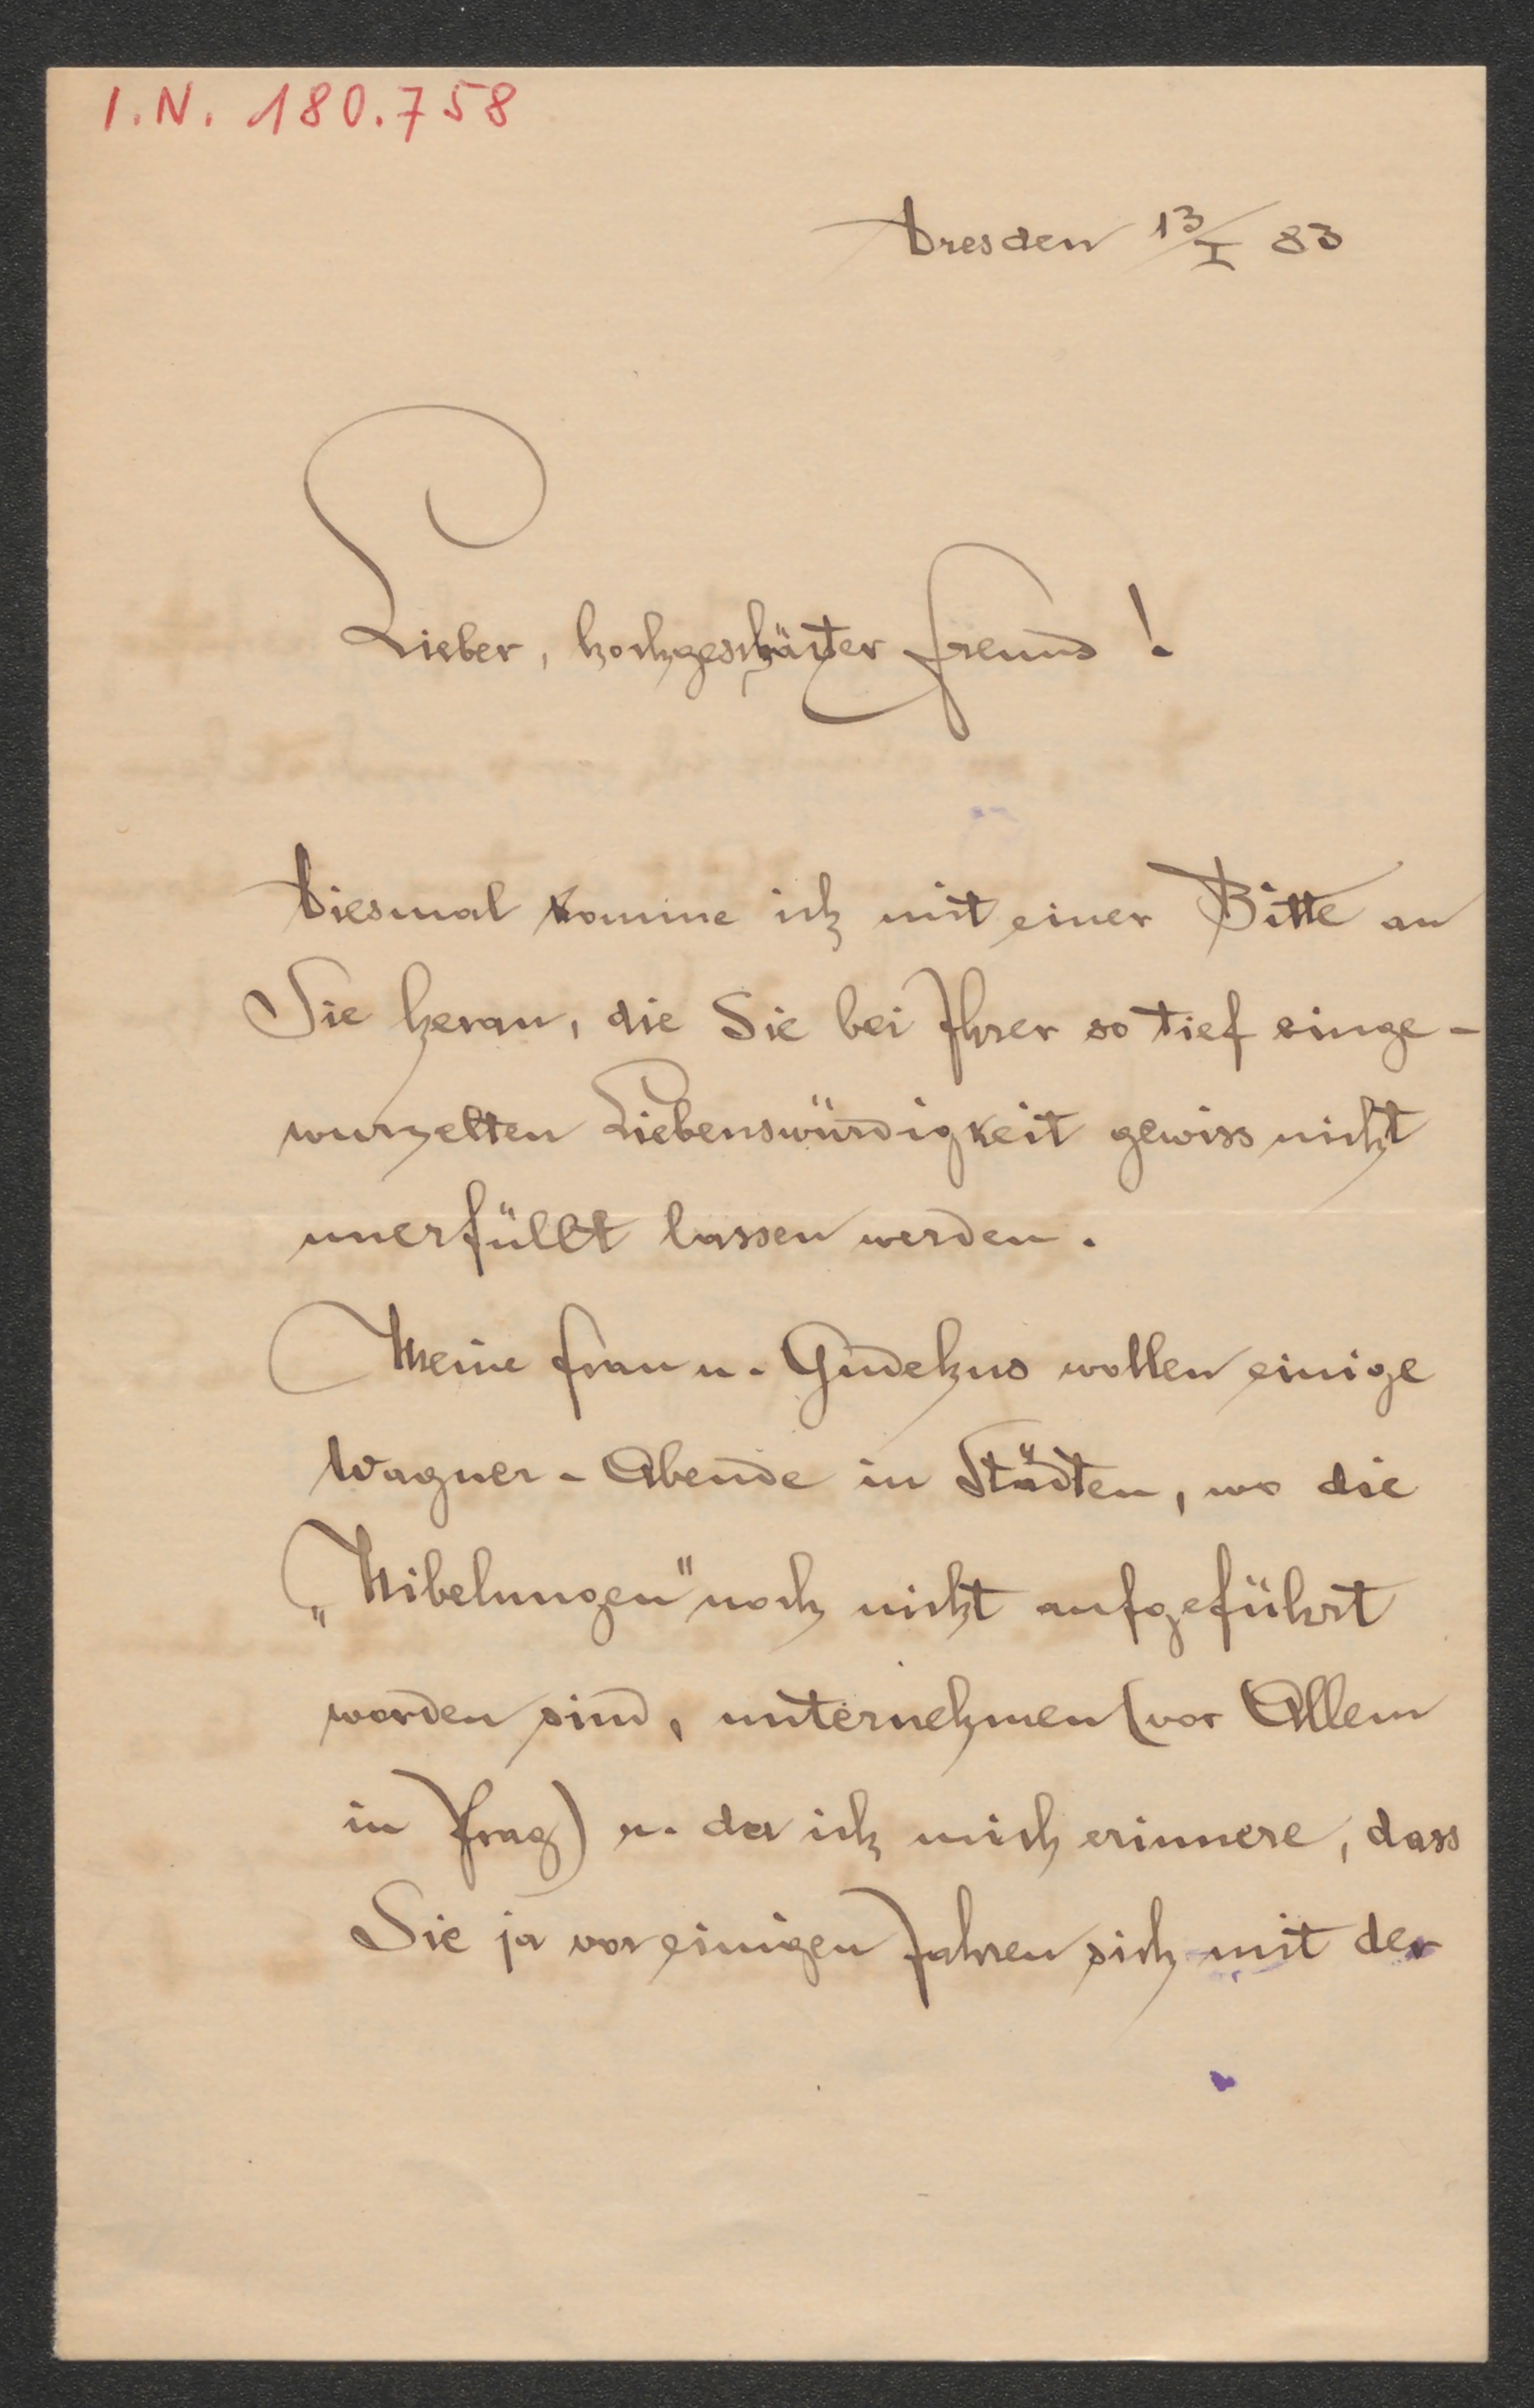 I.N. 180.758
Dresden 13/I 83
Lieber, hochgeschäzter Freund!
Diesmal komme ich mit einer Bitte an
Sie heran, die Sie bei Ihrer so tief einge-
wurzelten Liebenswürdigkeit gewiss nicht
unerfüllt lassen werden.
Meine Frau u. Gudehus wollen einige
Wagner-Abende in Städten, wo die
„Nibelungen" noch nicht aufgeführt
worden sind, unternehmen (vor Allem
in Prag) u. da ich mich erinnere, dass
Sie ja vor einigen Jahren sich mit der